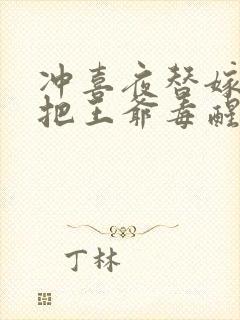 冲喜夜替嫁
把王爷毒醒
丁林